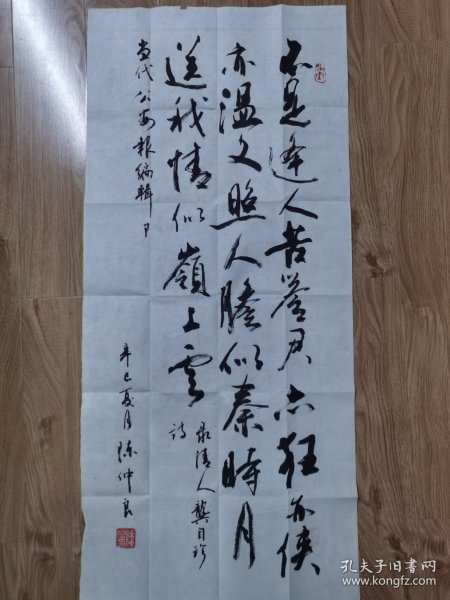 不是逢人苦誉君亦狂亦侠
亦温文照人膽似秦時月
送我情似嶺上雲
录清人龔自珍
诗
当代公安报编輯部
辛巳夏月 陈仲良
孔夫子旧书网
www.kongfz.com